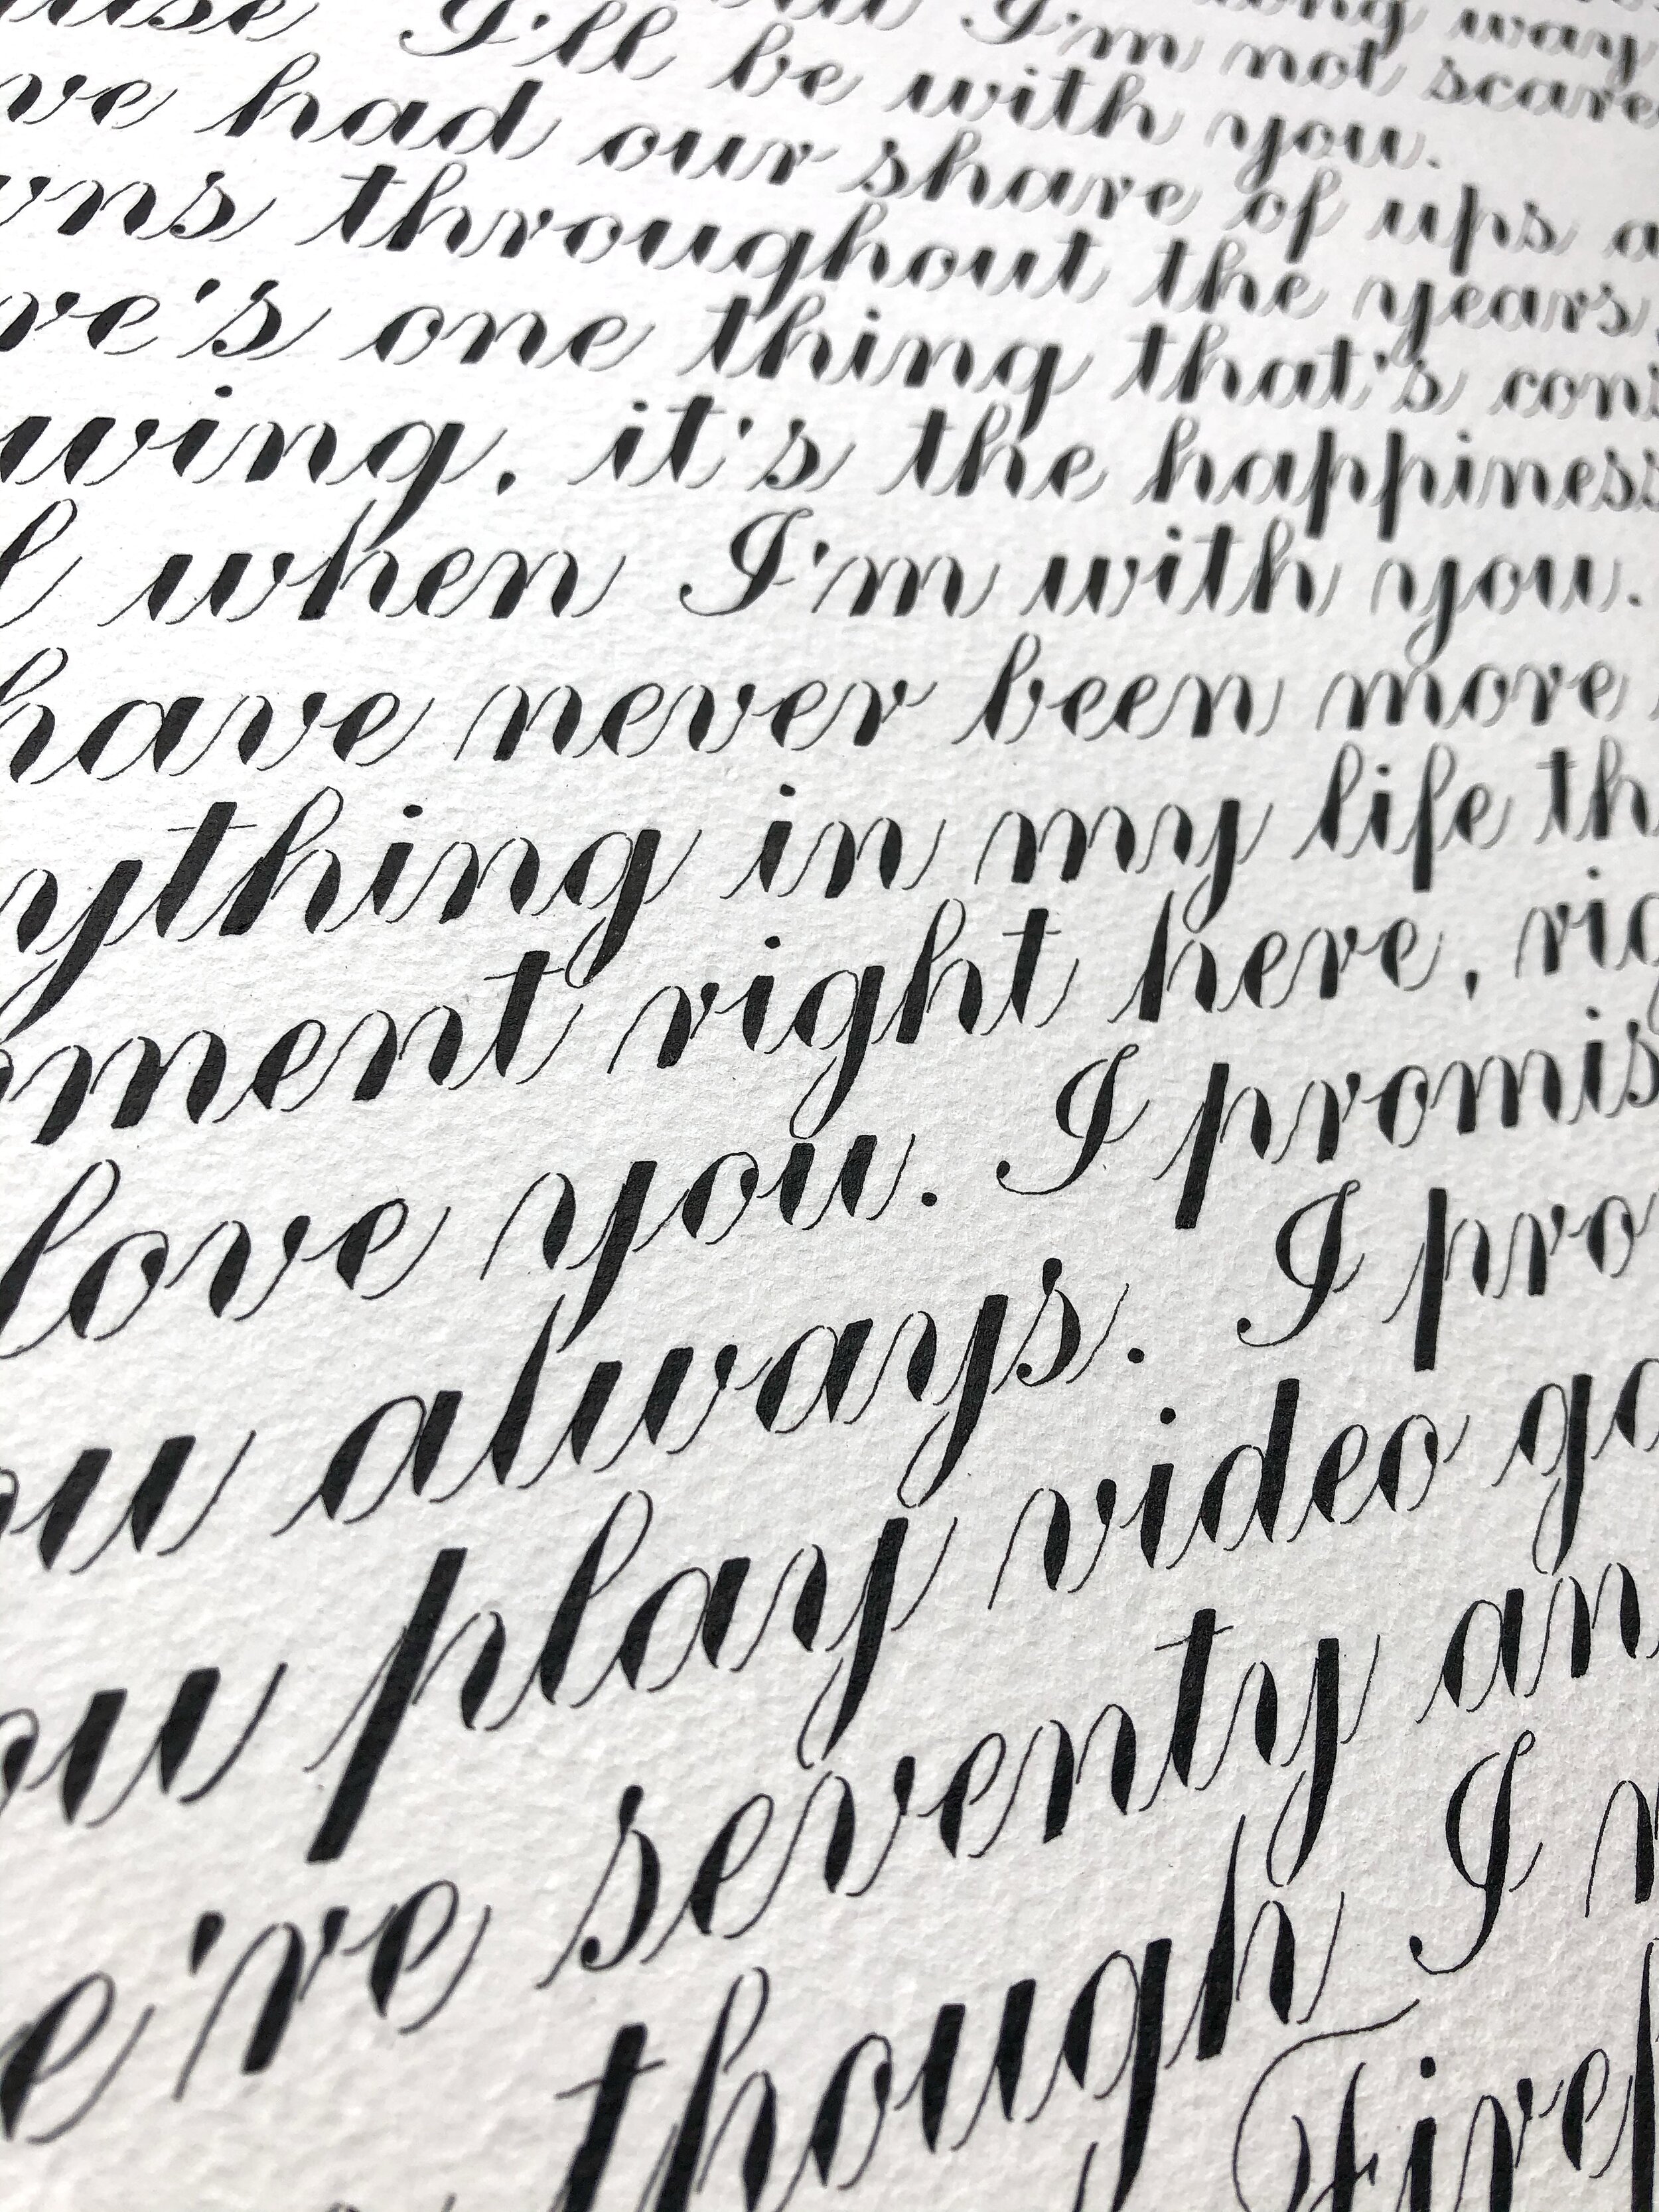 I'll be with you.
had our share of ups
throughout the years,
one thing that's
it's the happiness
when I'm with you.
have never been more
ything in my life th
ment right here, rig
love you. I promis
ou always. I pro
ou play video ga
e're seventy an
though I
Firef